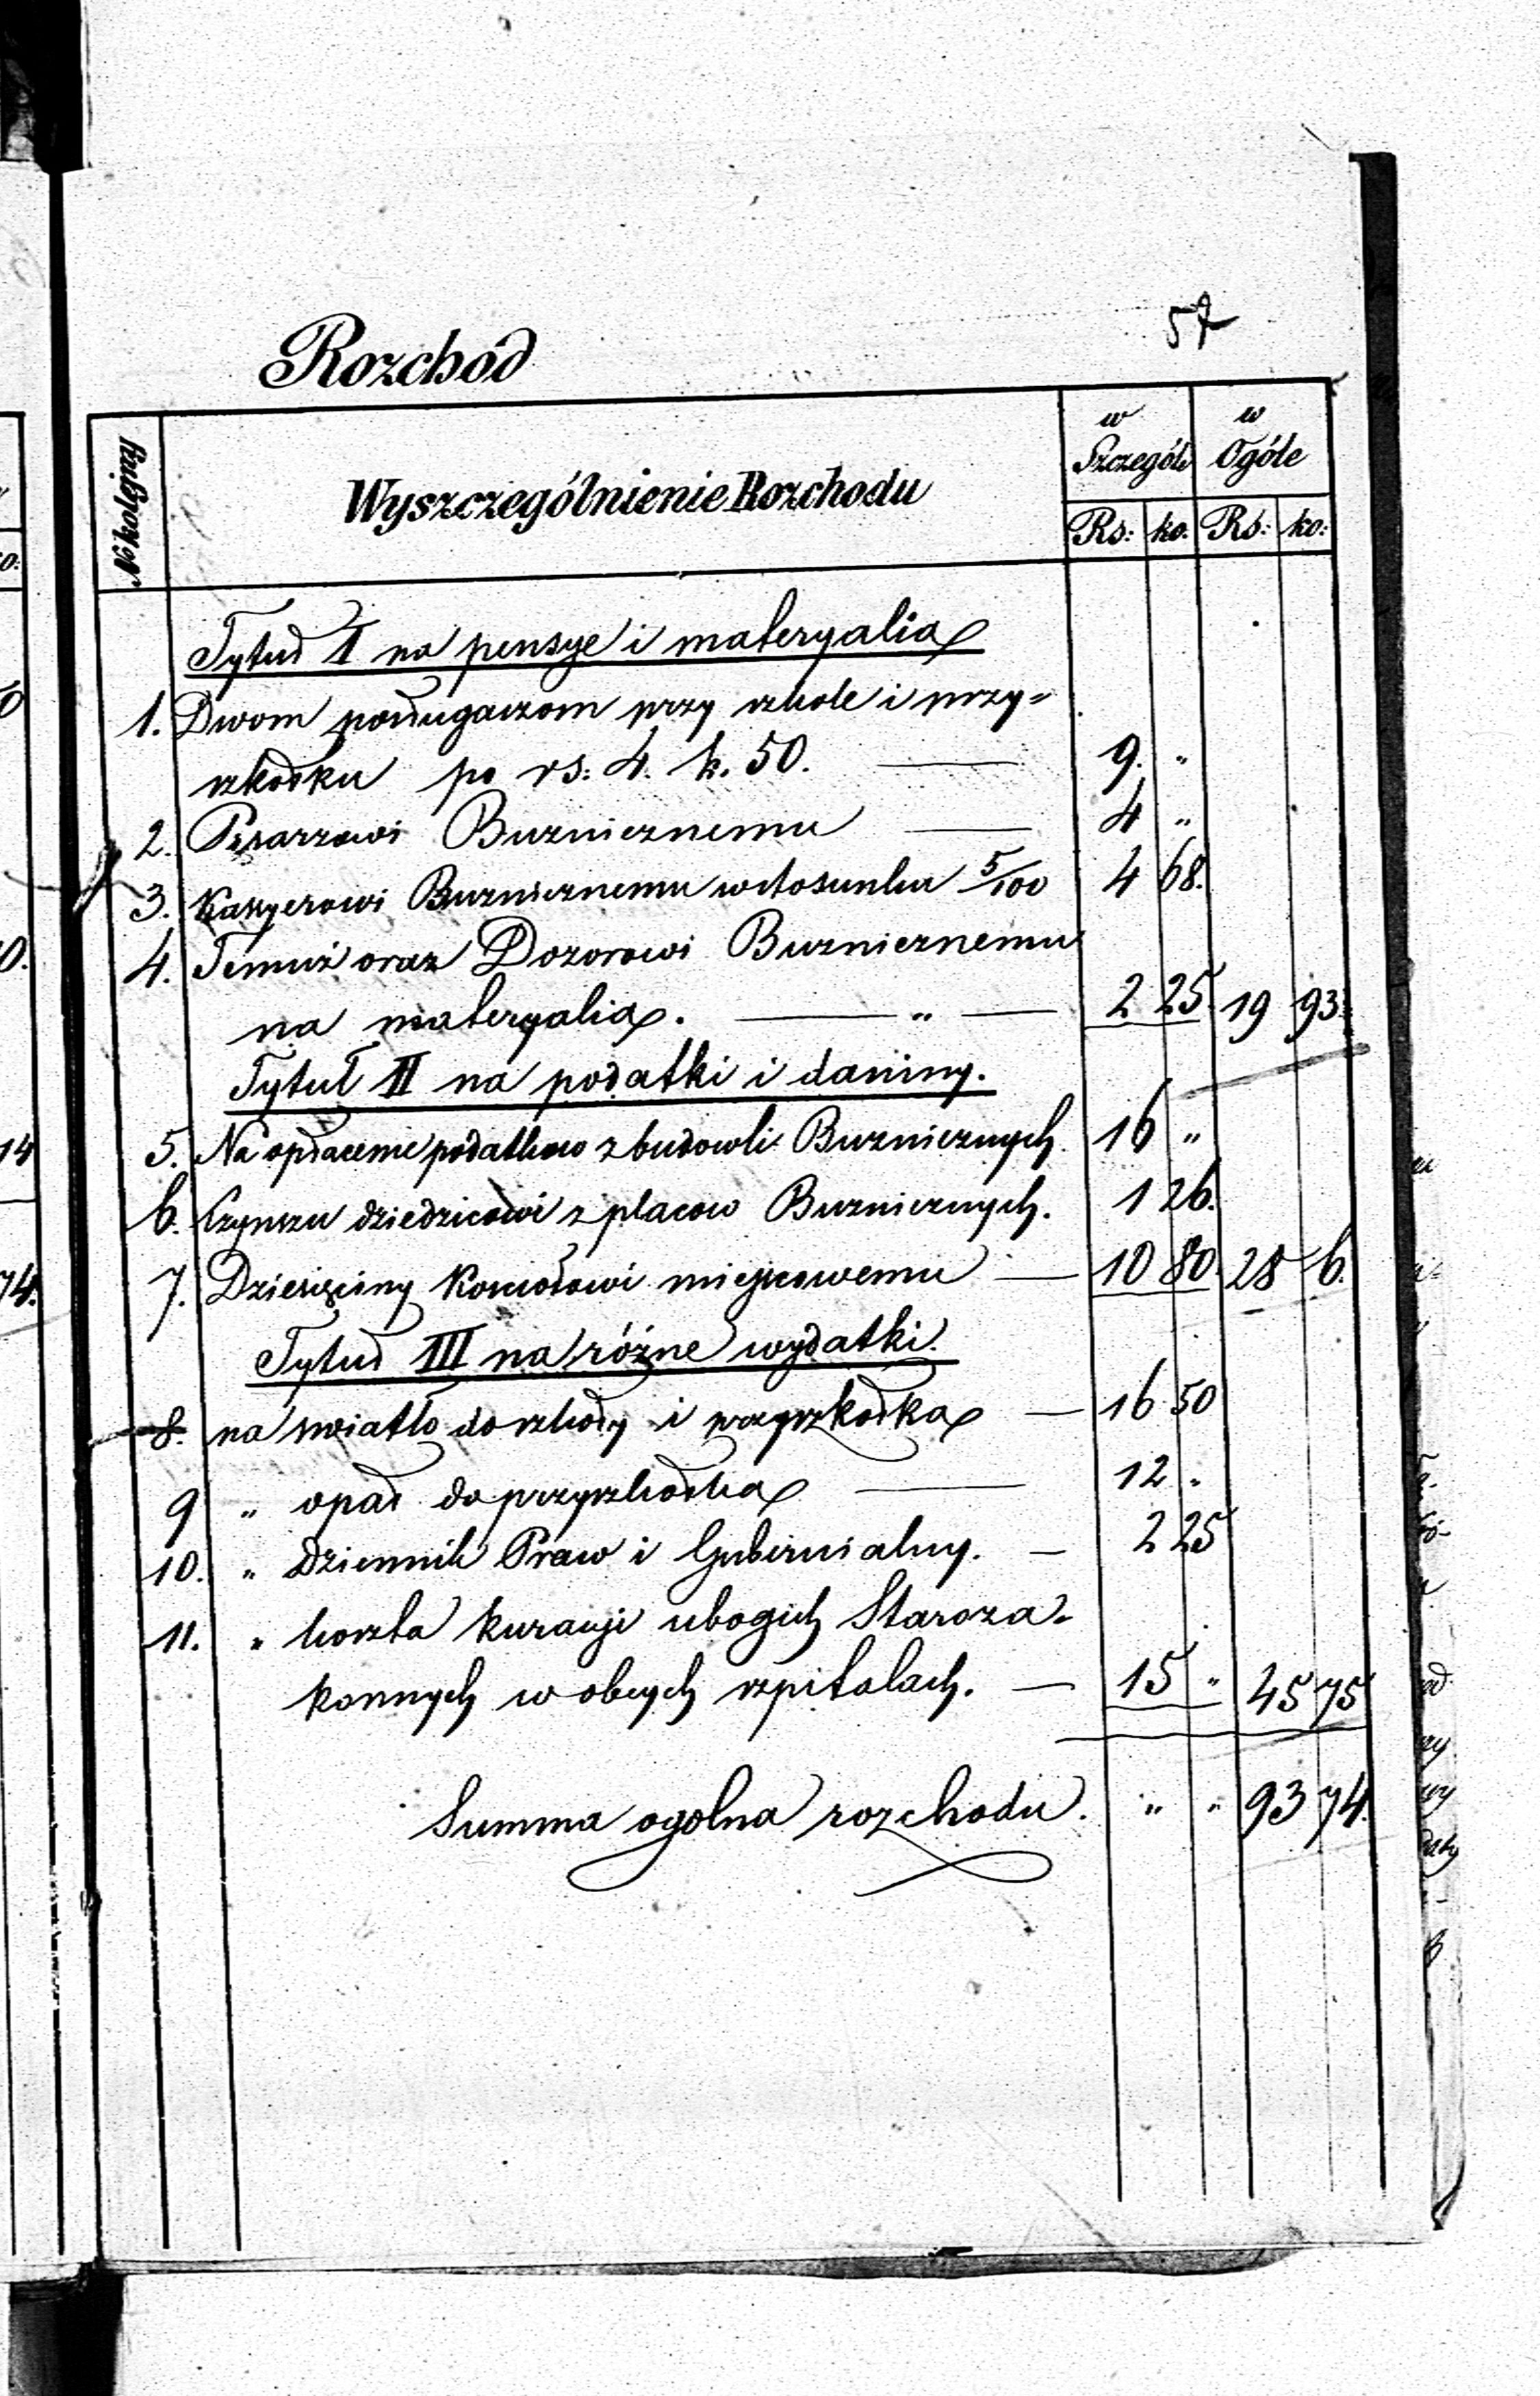 57
Rozchód
No kolejny
Wyszczególnienie Rozchodu
w Szczególe
w Ogóle
Rs: ko. Rs: ko:
Tytuł I na pensye i materyalia
1. Dwom posługaczom przy szkole i przy-
szkołku po rs: 4. k. 50. — 9. "
2. Pisarzowi Buznicznemu — 4 "
3. Kasyerowi Buznicznemu w stosunku 5/100 4 68.
4. Temuż oraz Dozorowi Buznicznemu
na materyalia. — " — 2 25. 19 93.
Tytuł II na podatki i daniny.
5. Na opłacenie podatkow z budowli Buznicznych 16 "
6. Czynszu dziedzicowi z placow Buznicznych. 1 26.
7. Dziesięciny Kosciołowi miejscowemu — 10 80. 28 6.
Tytuł III na różne wydatki.
8. na swiatło do szkoły i przyszkołka — 16 50
9 " opał do przyszkołka — 12 "
10. " Dziennik Praw i Gubernialny. — 2 25
11. " koszta kuracji ubogich Staroza-
konnych w obcych szpitalach. — 15 " 45 75
Summa ogolna rozchodu. " " 93 74.